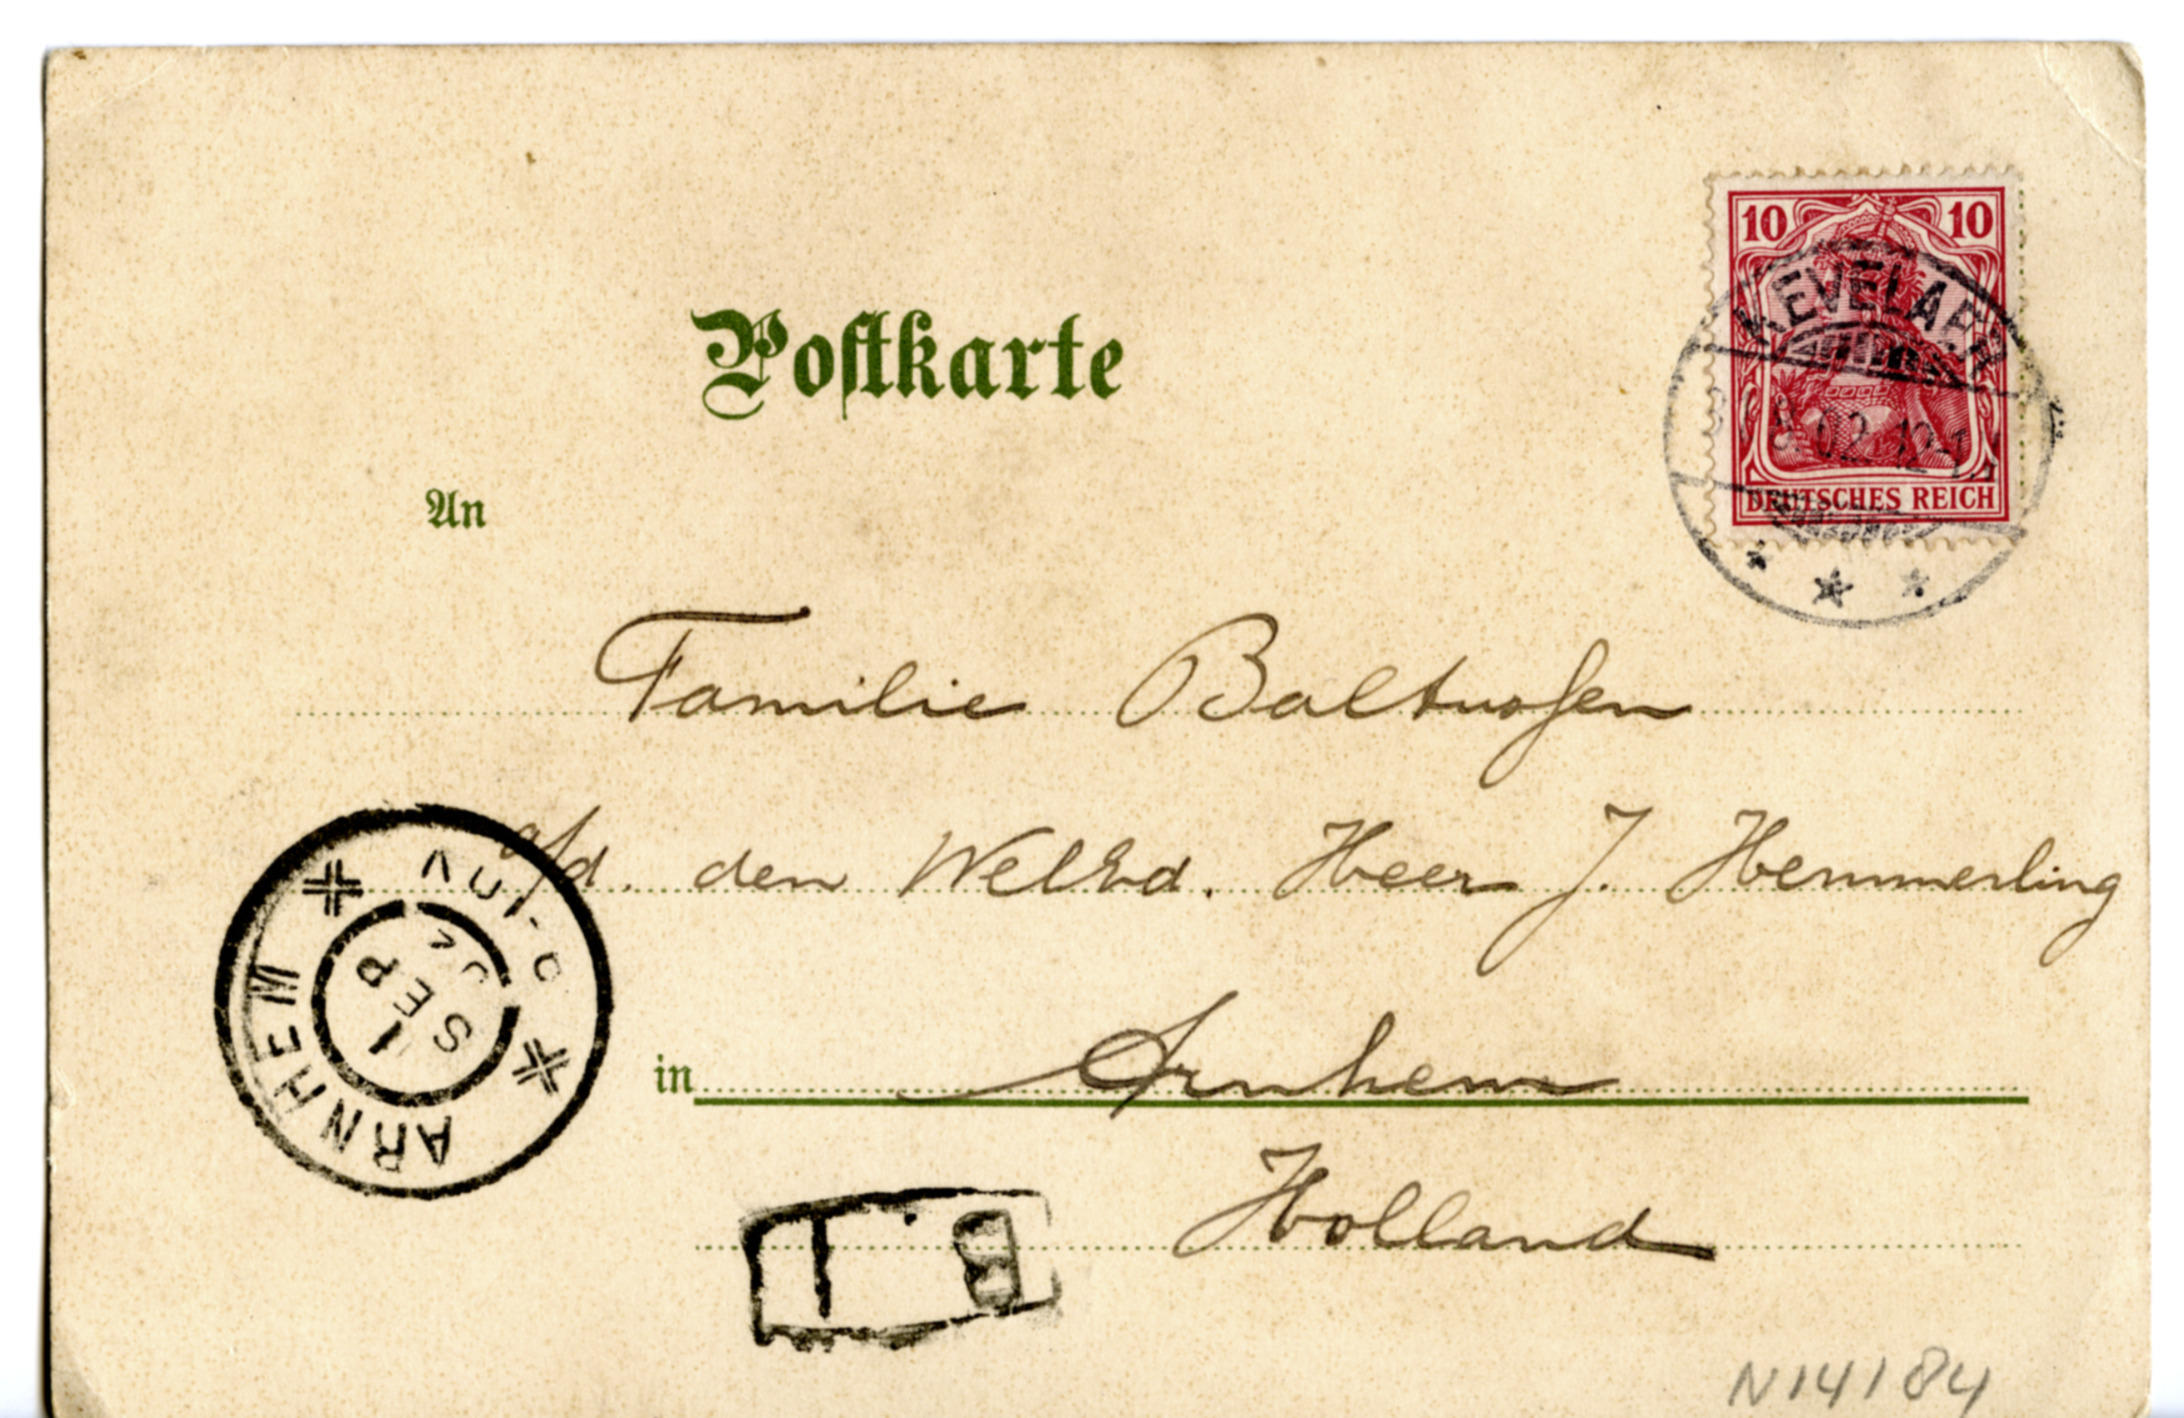 Postkarte
10 10
KEVELAER
02 12-1
DEUTSCHES REICH
An
Familie
a/d. den WelEd. Heer J. Hemmerling
ARNHEM
SEP
in Arnhem
Holland
N14184